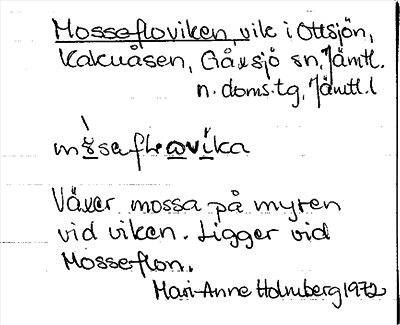 Mossefloviken, vik i Ottsjön,
Kakuåsen, Gåxsjö sn, Jämtl.
n. doms.tg, Jämtl. l
Växer mossa på myren
vid viken. Ligger vid
Mosseflon.
Mari-Anne Holmberg 1972